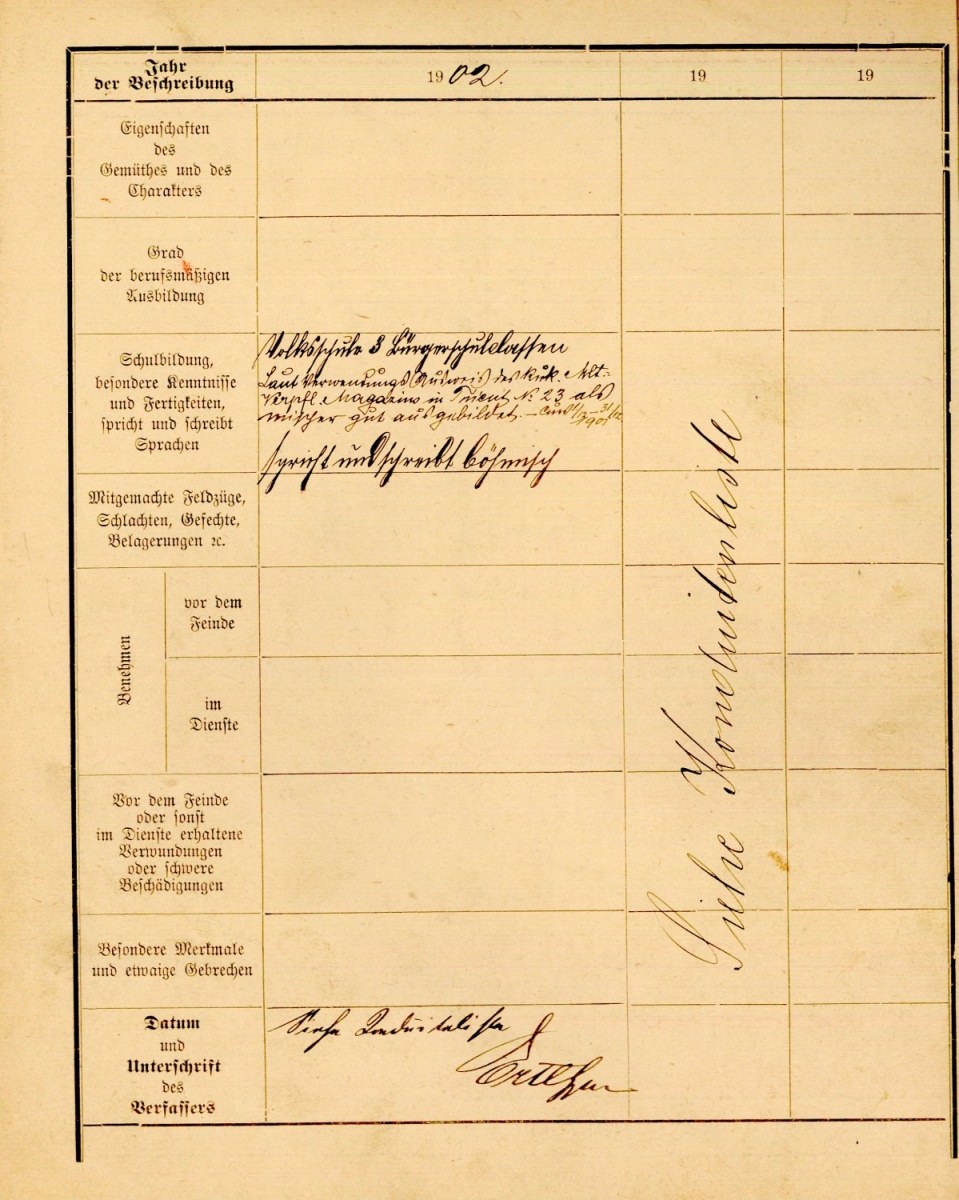 Jahr
der Beschreibung
1902.
19
19
Eigenschaften
des
Gemüthes und des
Charakters
Grad
der berufsmäßigen
Ausbildung
Schulbildung,
besondere Kenntnisse
und Fertigkeiten,
spricht und schreibt
Sprachen
Volksschule 3 Bürgerschulclassen
Laut Verwendungs Ausweis des k.u.k. Mlt.-
Verpfl. Magazins in Trient № 23 als
mischer gut ausgebildet.
spricht und schreibt böhmisch
Mitgemachte Feldzüge,
Schlachten, Gefechte,
Belagerungen ꝛc.
Benehmen
vor dem
Feinde
im
Dienste
Vor dem Feinde
oder sonst
im Dienste erhaltene
Verwundungen
oder schwere
Beschädigungen
Besondere Merkmale
und etwaige Gebrechen
Datum
und
Unterschrift
des
Verfassers
Siehe Conduiteliste
Siehe Konduitenliste